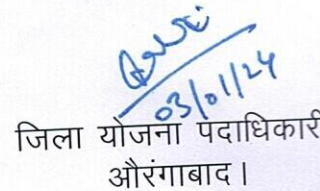 03/01/24
जिला योजना पदाधिकारी
औरंगाबाद।